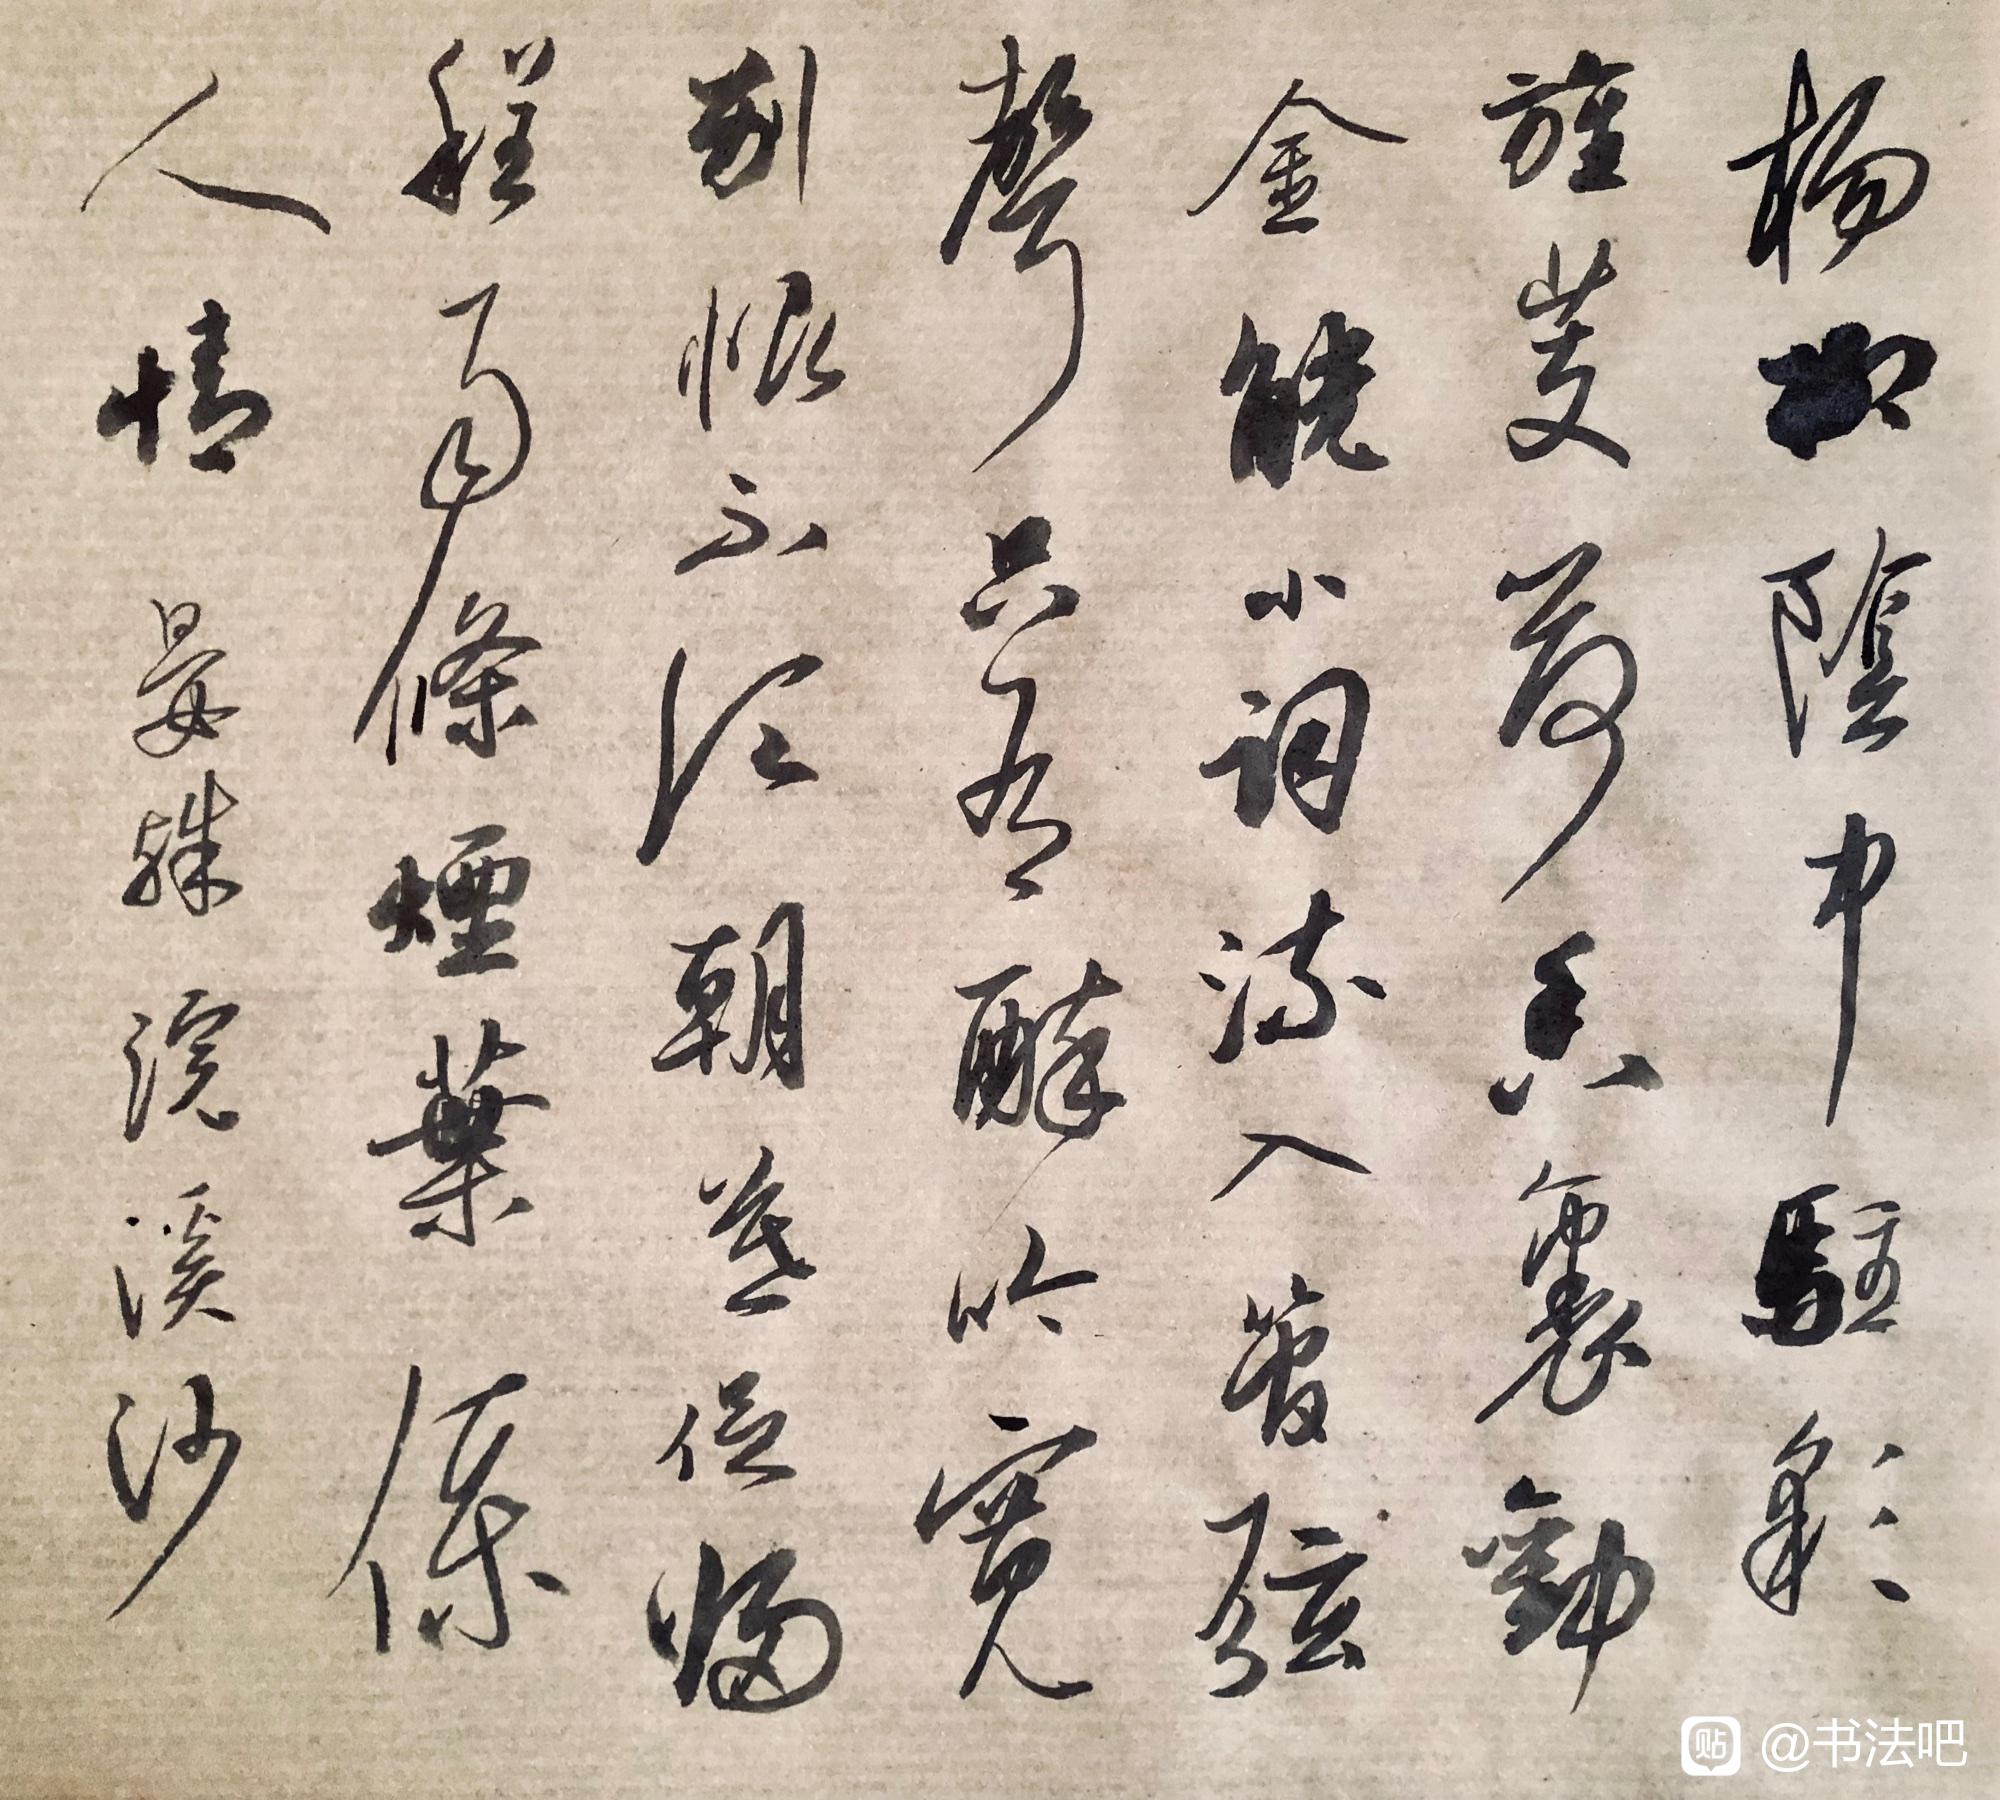 楊柳陰中駐彩
旌芰荷香裏勸
金觥小詞流入管弦
聲只有醉吟寬
別恨不須朝暮促歸
程雨條煙葉係
人情 晏殊 浣溪沙
貼 @书法吧